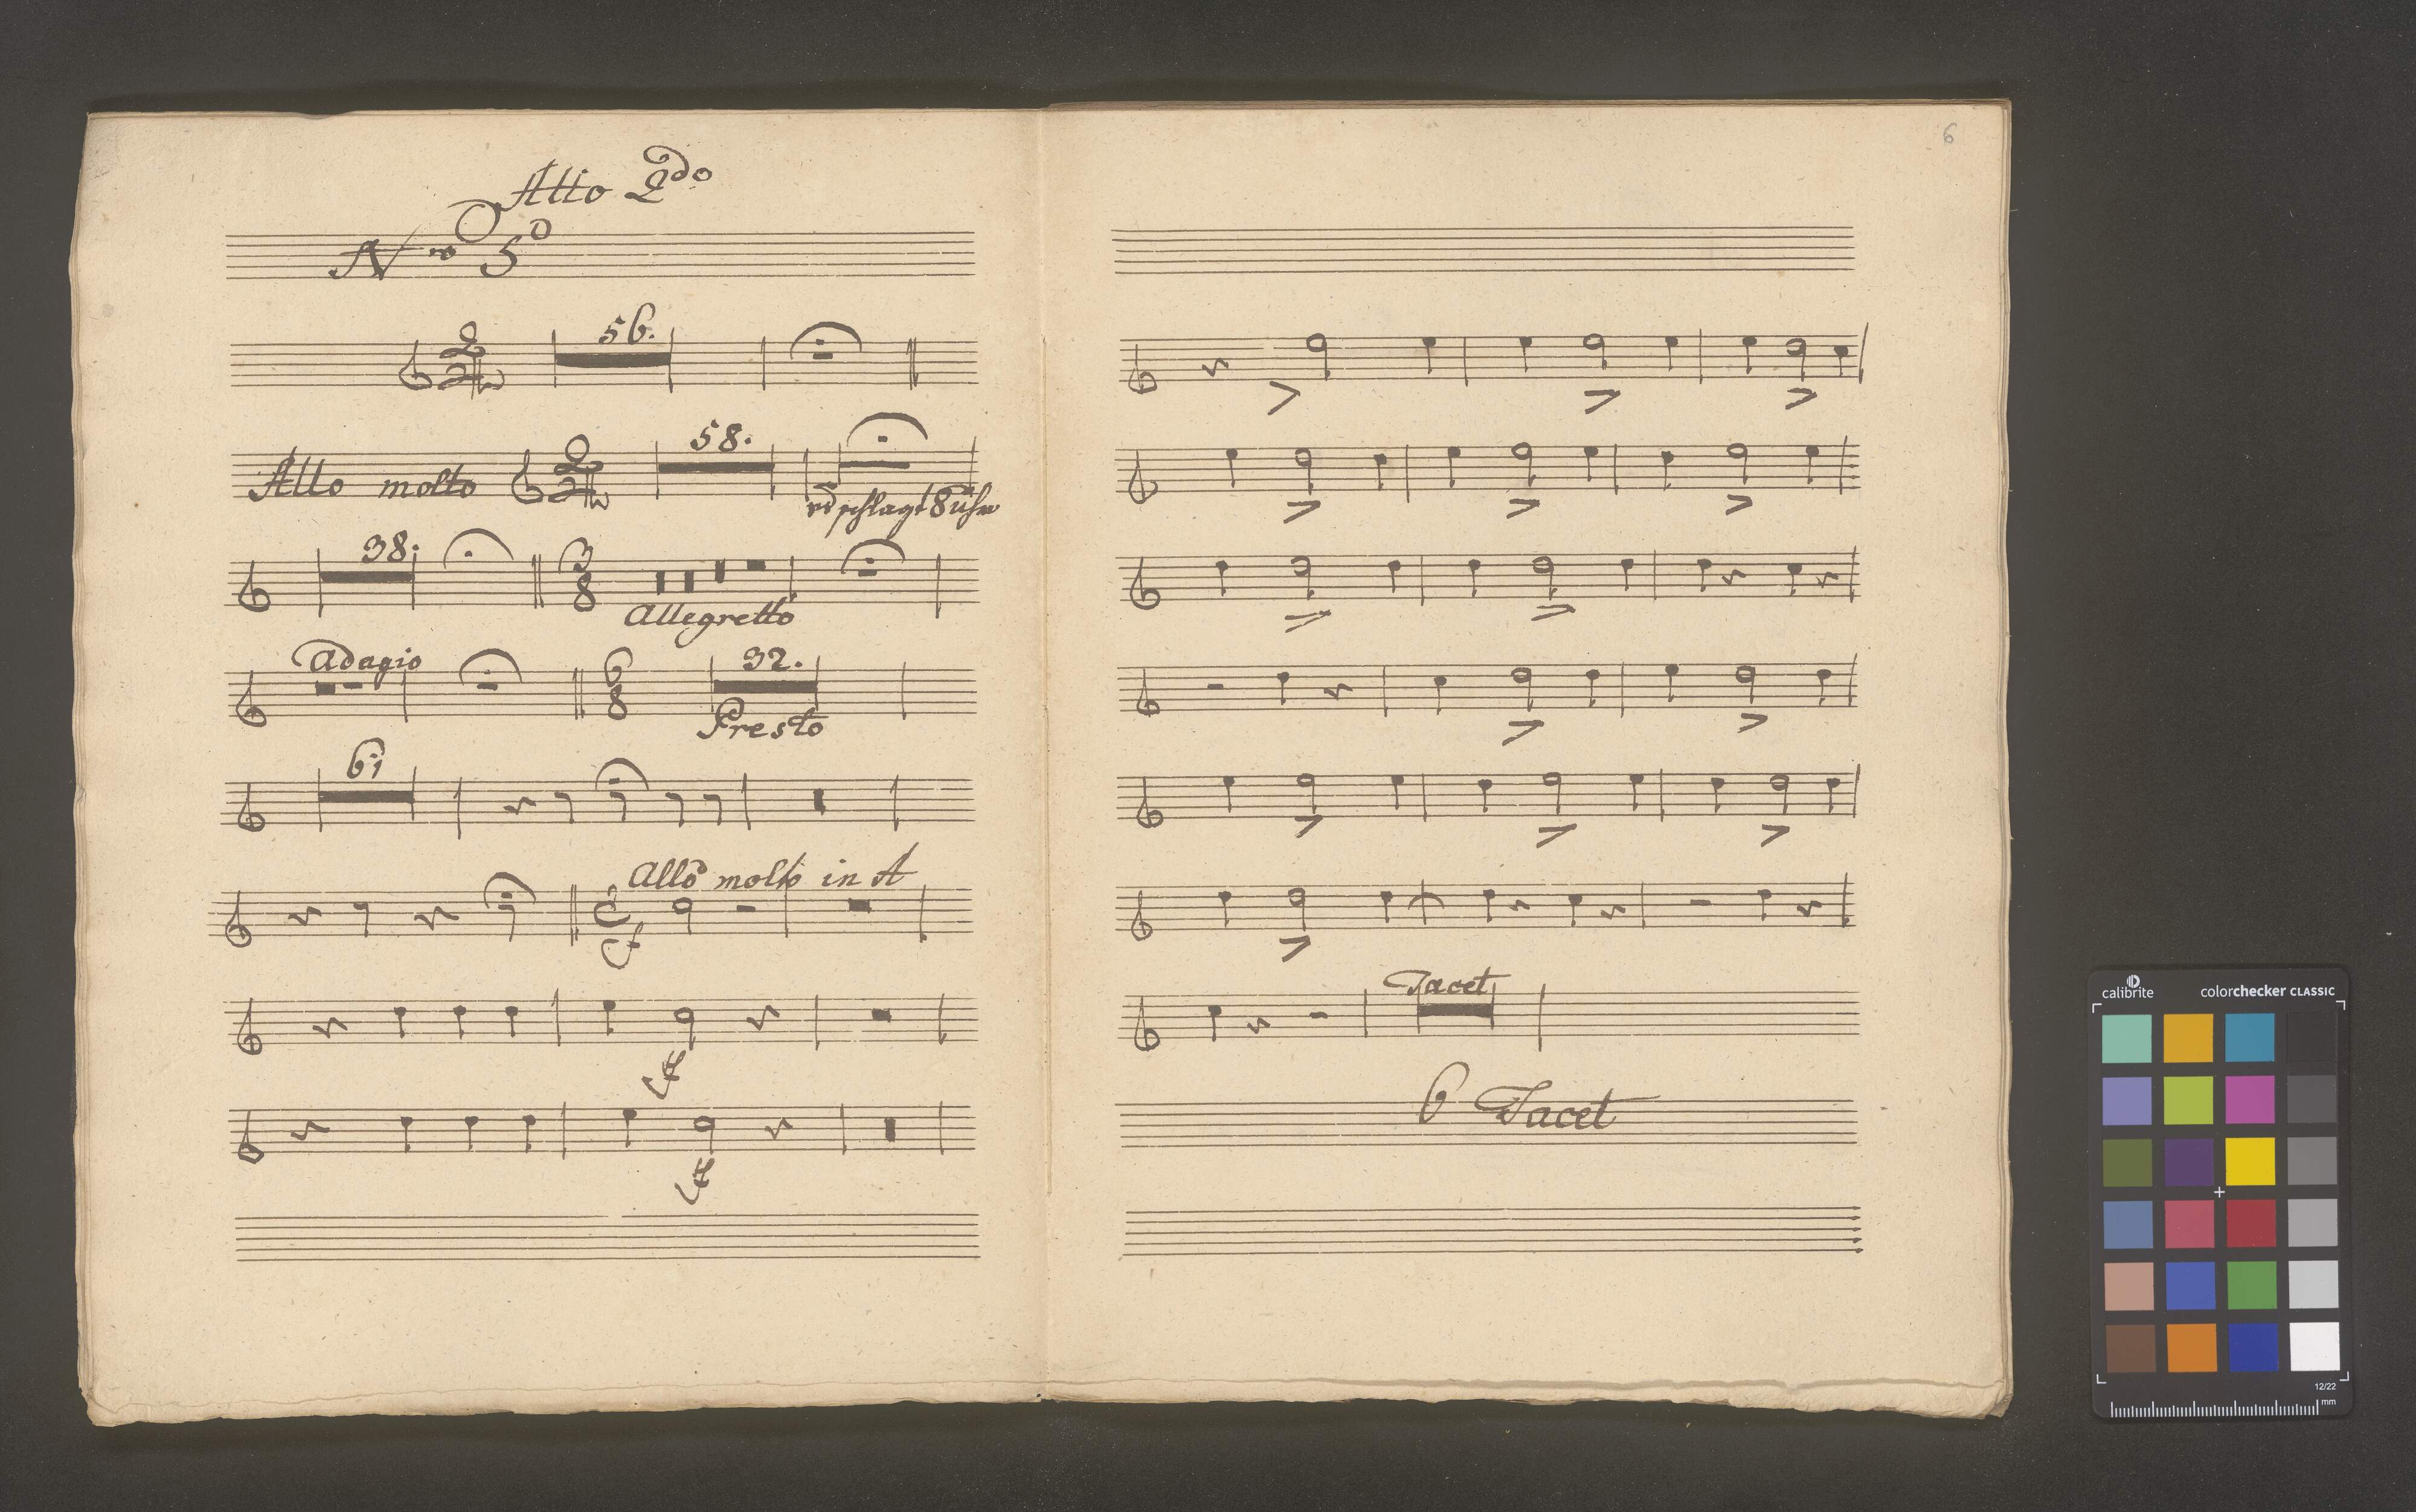 Atto 2do
Nro 5o
2
4
56.
Allo molto
2
4
58.
es schlagt 8 uhr
38.
3
8
Allegretto
Adagio
6
8
32.
Presto
61
Allo molto in A
f
f
f
6
Tacet
6 Tacet
calibrite
colorchecker CLASSIC
12/22
mm